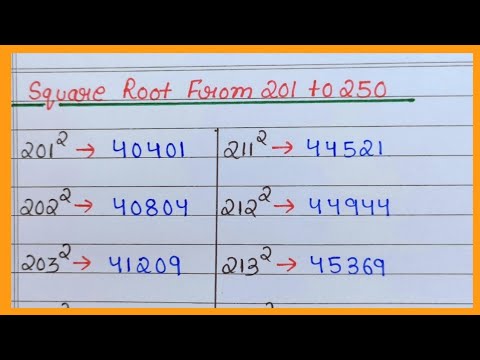 Square Root From 201 to 250
201² → 40401
202² → 40804
203² → 41209
211² → 44521
212² → 44944
213² → 45369